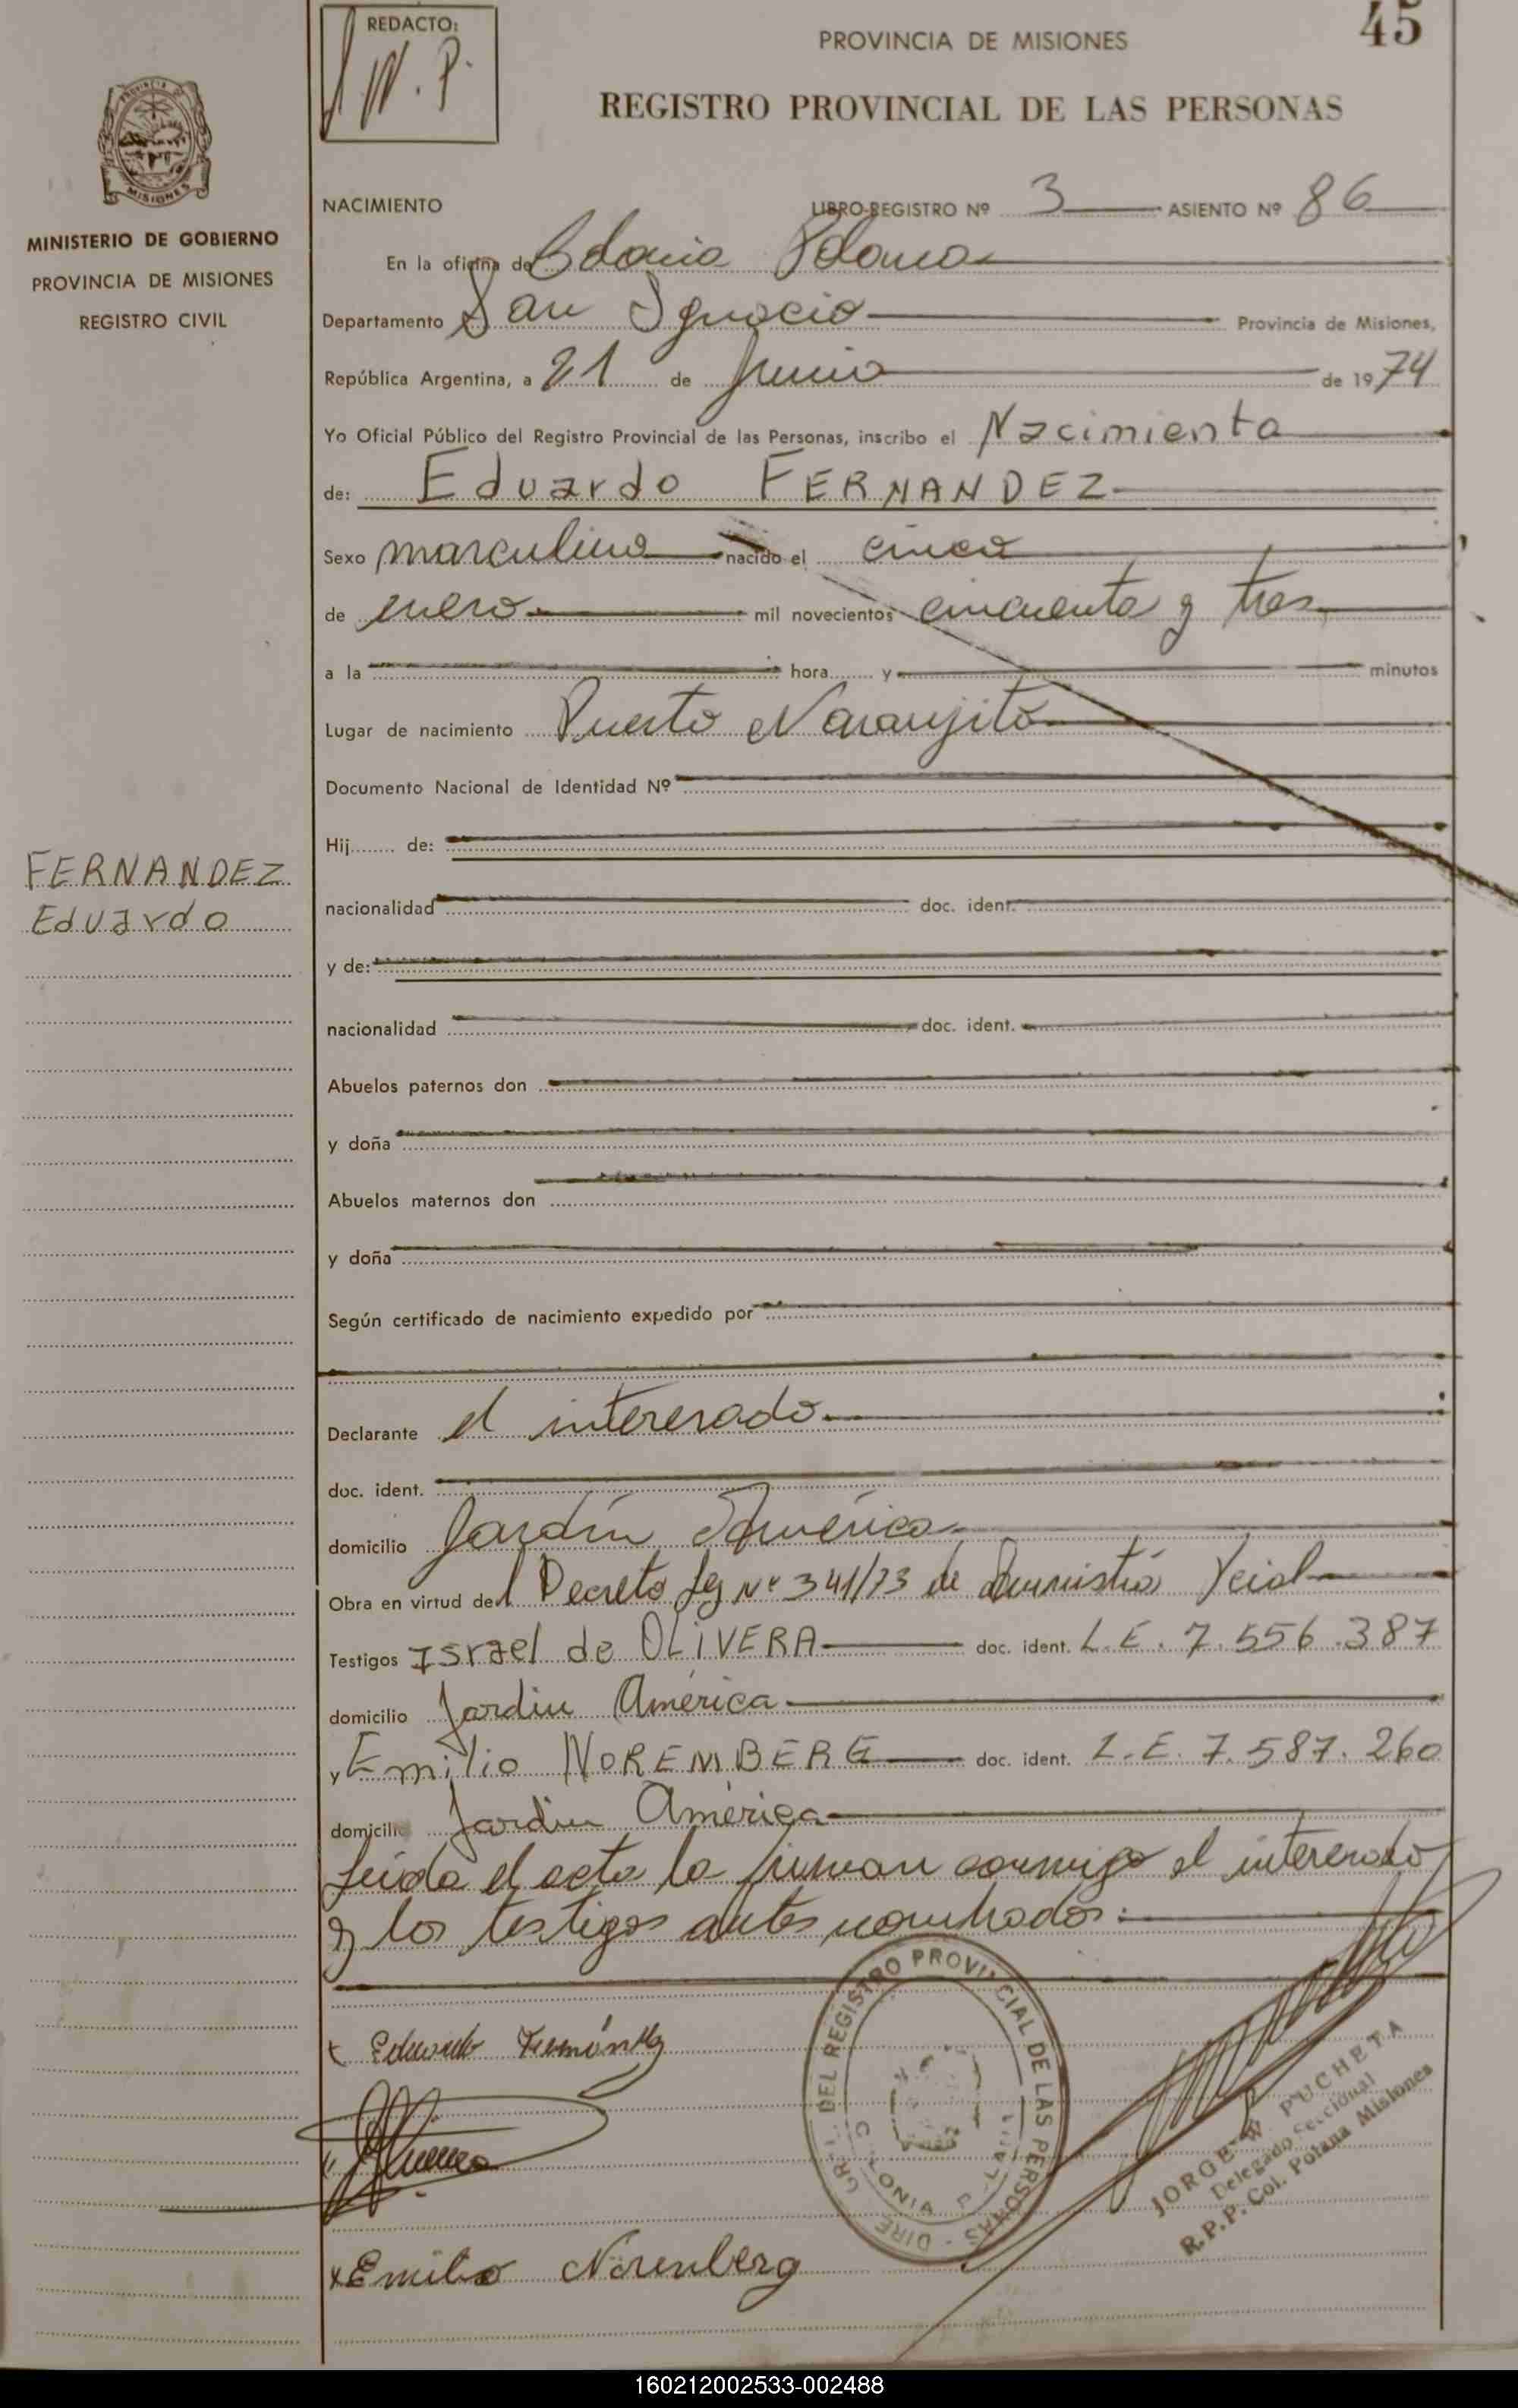 REDACTO:
W. P.
PROVINCIA DE MISIONES
45
REGISTRO PROVINCIAL DE LAS PERSONAS
PROVINCIA DE
MISIONES
MINISTERIO DE GOBIERNO
PROVINCIA DE MISIONES
REGISTRO CIVIL
NACIMIENTO LIBRO-REGISTRO Nº 3 ASIENTO Nº 86
En la oficina de Colonia Polana
Departamento San Ignacio Provincia de Misiones,
República Argentina, a 21 de Junio de 1974
Yo Oficial Público del Registro Provincial de las Personas, inscribo el Nacimiento
de: Eduardo FERNANDEZ
Sexo masculino nacido el cinco
de enero mil novecientos cincuenta y tres
a la hora y minutos
Lugar de nacimiento Puerto Naranjito
Documento Nacional de Identidad Nº
Hij de:
FERNANDEZ
Eduardo
nacionalidad doc. ident.
y de:
nacionalidad doc. ident.
Abuelos paternos don
y doña
Abuelos maternos don
y doña
Según certificado de nacimiento expedido por
Declarante el interesado
doc. ident.
domicilio Jardín América
Obra en virtud del Decreto Ley Nº 341/73 de Amnistía
Testigos Israel de OLIVERA doc. ident. L.E. 7.556.387
domicilio Jardín América
y Emilio NOREMBERG doc. ident. L.E. 7.587.260
domicilio Jardín América
Leída el acta la firman conmigo el interesado
y los testigos antes nombrados:
x Eduardo Fernández
x Emilio Norenberg
DEL REGISTRO PROVINCIAL DE LAS PERSONAS
JORGE W PUCHETA
Delegado Seccional
R.P.P. Col. Polana Misiones
160212002533-002488